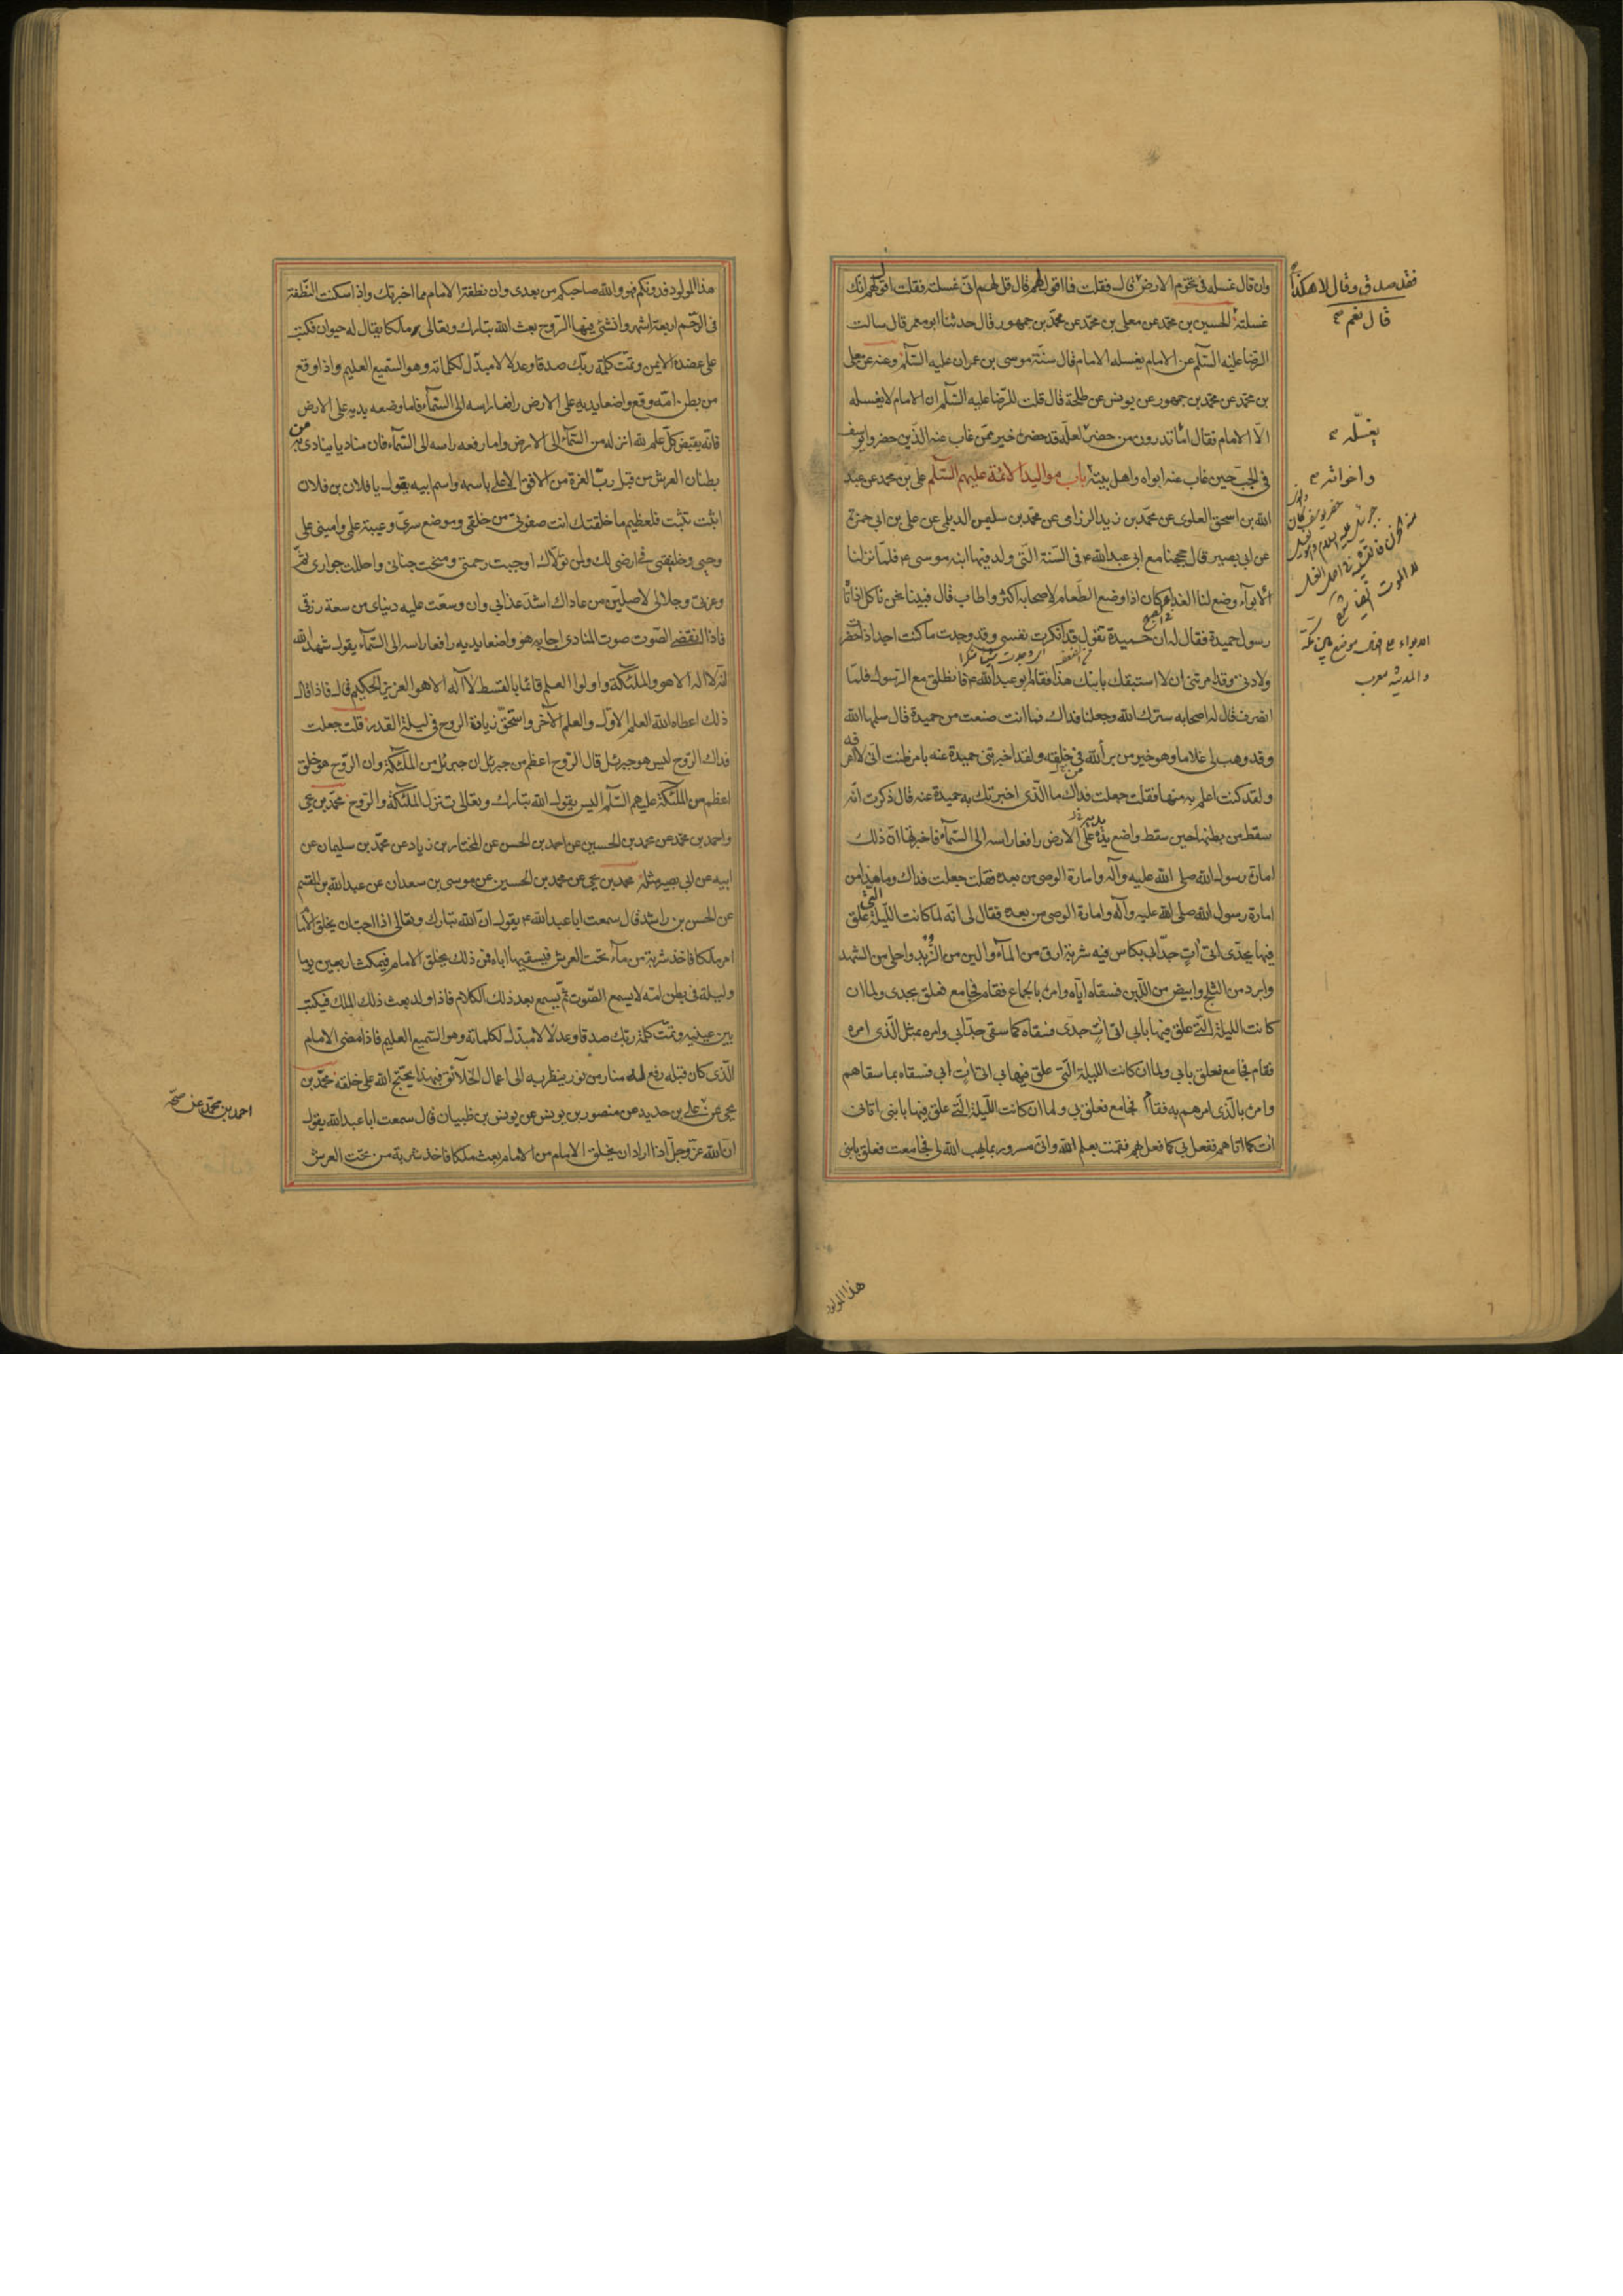 وان قال غسله في تخوم الارض فقلت فما اقول لهم قال قل لهم اني غسلته فقلت اقول لهم انك
غسلته الحسين بن محمد عن معلى بن محمد عن محمد بن جمهور قال حدثنا ابو معمر قال سالت
الرضا عليه السلم عن الامام يغسله الامام قال سنة موسى بن عمران عليه السلم وعنه عن معلى
بن محمد عن محمد بن جمهور عن يونس عن طلحة قال قلت للرضا عليه السلم ان الامام لا يغسله
الا الامام فقال اما تدرون من حضر لعله قد حضره خير ممن غاب عنه الذين حضروا يوسف
في الجب حين غاب عنه ابواه واهل بيته باب مواليد الائمة عليهم السلم علي بن محمد عن عبد
الله بن اسحق العلوي عن محمد بن زيد الرزامي عن محمد بن سليمن الديلمي عن علي بن ابي حمزة
عن ابي بصير قال حججنا مع ابي عبد الله ع في السنة التي ولد فيها ابنه موسى ع فلما نزلنا
الابواء وضع لنا الغداء وكان اذا وضع الطعام لاصحابه اكثر واطاب قال فبينا نحن ناكل اذ اتانا
رسول حميدة فقال له ان حميدة تقول قد انكرت نفسي وقد وجدت ما كنت اجد اذا حضرت
ولادتي وقد امرتني ان لا استبقك بابنك هذا فقام ابو عبد الله ع فانطلق مع الرسول فلما
انصرف قال له اصحابه سرك الله وجعلنا فداك فما انت صنعت من حميدة قال سلمها الله
وقد وهب لي غلاما وهو خير من برأ الله في خلقه ولقد اخبرتني حميدة عنه بامر ظنت اني لا اعرفه
ولقد كنت اعلم به منها فقلت جعلت فداك ما الذي اخبرتك به حميدة عنه قال ذكرت انه
سقط من بطنها حين سقط واضع يده على الارض رافعا راسه الى السماء فاخبرتها ان ذلك
امارة رسول الله صلى الله عليه وآله وامارة الوصي من بعده فقلت جعلت فداك وما هذا من
امارة رسول الله صلى الله عليه وآله وامارة الوصي من بعده فقال لي انه لما كانت الليلة التي علق
فيها بجدي اتى آت جد ابي بكاس فيه شربة ارق من الماء والين من الزبد واحلى من الشهد
وابرد من الثلج وابيض من اللبن فسقاه اياه وامره بالجماع فقام فجامع فعلق بجدي ولما ان
كانت الليلة التي علق فيها بابي اتى آت جدي فسقاه كما سقى جد ابي وامره بمثل الذي امره
فقام فجامع فعلق بابي ولما ان كانت الليلة التي علق فيها بي اتى آت ابي فسقاه بما سقاهم
وامره بالذي امرهم به فقام فجامع فعلق بي ولما ان كانت الليلة التي علق فيها بابني اتاني
آت كما اتاهم ففعل بي كما فعل بهم فقمت بعلم الله واني مسرور بما يهب الله لي فجامعت فعلق بابني
فقد صدق وقال لا هكذا
قال نعم صح
يغسله صح
واخواته صح
هذا المولود
هذا المولود فدونكم فهو والله صاحبكم من بعدي وان نطفة الامام مما اخبرتك واذا سكنت النطفة
في الرحم اربعة اشهر وانشئ فيها الروح بعث الله تبارك وتعالى ملكا يقال له حيوان فكتب
على عضده الايمن وتمت كلمة ربك صدقا وعدلا لا مبدل لكلماته وهو السميع العليم واذا وقع
من بطن امه وقع واضعا يديه على الارض رافعا راسه الى السماء فاما وضعه يديه على الارض
فانه يقبض كل علم لله انزله من السماء الى الارض واما رفعه راسه الى السماء فان مناديا ينادي به من
بطنان العرش من قبل رب العزة من الافق الاعلى باسمه واسم ابيه يقول يا فلان بن فلان
اثبت تثبت فلعظيم ما خلقتك انت صفوتي من خلقي وموضع سري وعيبة علمي واميني على
وحيي وخليفتي في ارضي لك ولمن تولاك اوجبت رحمتي ومنحت جناني واحللت جواري ثم
وعزتي وجلالي لاصلين من عاداك اشد عذابي وان وسعت عليه دنياي من سعة رزقي
فاذا انقضى الصوت صوت المنادي اجابه هو واضعا يديه رافعا راسه الى السماء يقول شهد الله
انه لا اله الا هو والملئكة واولوا العلم قائما بالقسط لا اله الا هو العزيز الحكيم قال فاذا قال
ذلك اعطاه الله العلم الاول والعلم الآخر واستحق زيارة الروح في ليلة القدر قلت جعلت
فداك الروح ليس هو جبرئيل قال الروح اعظم من جبرئيل ان جبرئيل من الملئكة وان الروح هو خلق
اعظم من الملئكة عليهم السلم اليس يقول الله تبارك وتعالى تنزل الملئكة والروح محمد بن يحيى
واحمد بن محمد عن محمد بن الحسين عن احمد بن الحسن عن المختار بن زياد عن محمد بن سليمان عن
ابيه عن ابي بصير مثله محمد بن يحيى عن محمد بن الحسين عن موسى بن سعدان عن عبد الله بن القسم
عن الحسن بن راشد قال سمعت ابا عبد الله ع يقول ان الله تبارك وتعالى اذا احب ان يخلق الامام
امر ملكا فاخذ شربة من ماء تحت العرش فيسقيها اباه فمن ذلك يخلق الامام فيمكث اربعين يوما
وليلة في بطن امه لا يسمع الصوت ثم يسمع بعد ذلك الكلام فاذا ولد بعث ذلك الملك فيكتب
بين عينيه وتمت كلمة ربك صدقا وعدلا لا مبدل لكلماته وهو السميع العليم فاذا مضى الامام
الذي كان قبله رفع له منار من نور ينظر به الى اعمال الخلائق فبهذا يحتج الله على خلقه محمد بن
يحيى عن علي بن حديد عن منصور بن يونس عن يونس بن ظبيان قال سمعت ابا عبد الله يقول
ان الله عز وجل اذا اراد ان يخلق الامام من الامام بعث ملكا فاخذ شربة من تحت العرش
احمد بن محمد عن صح